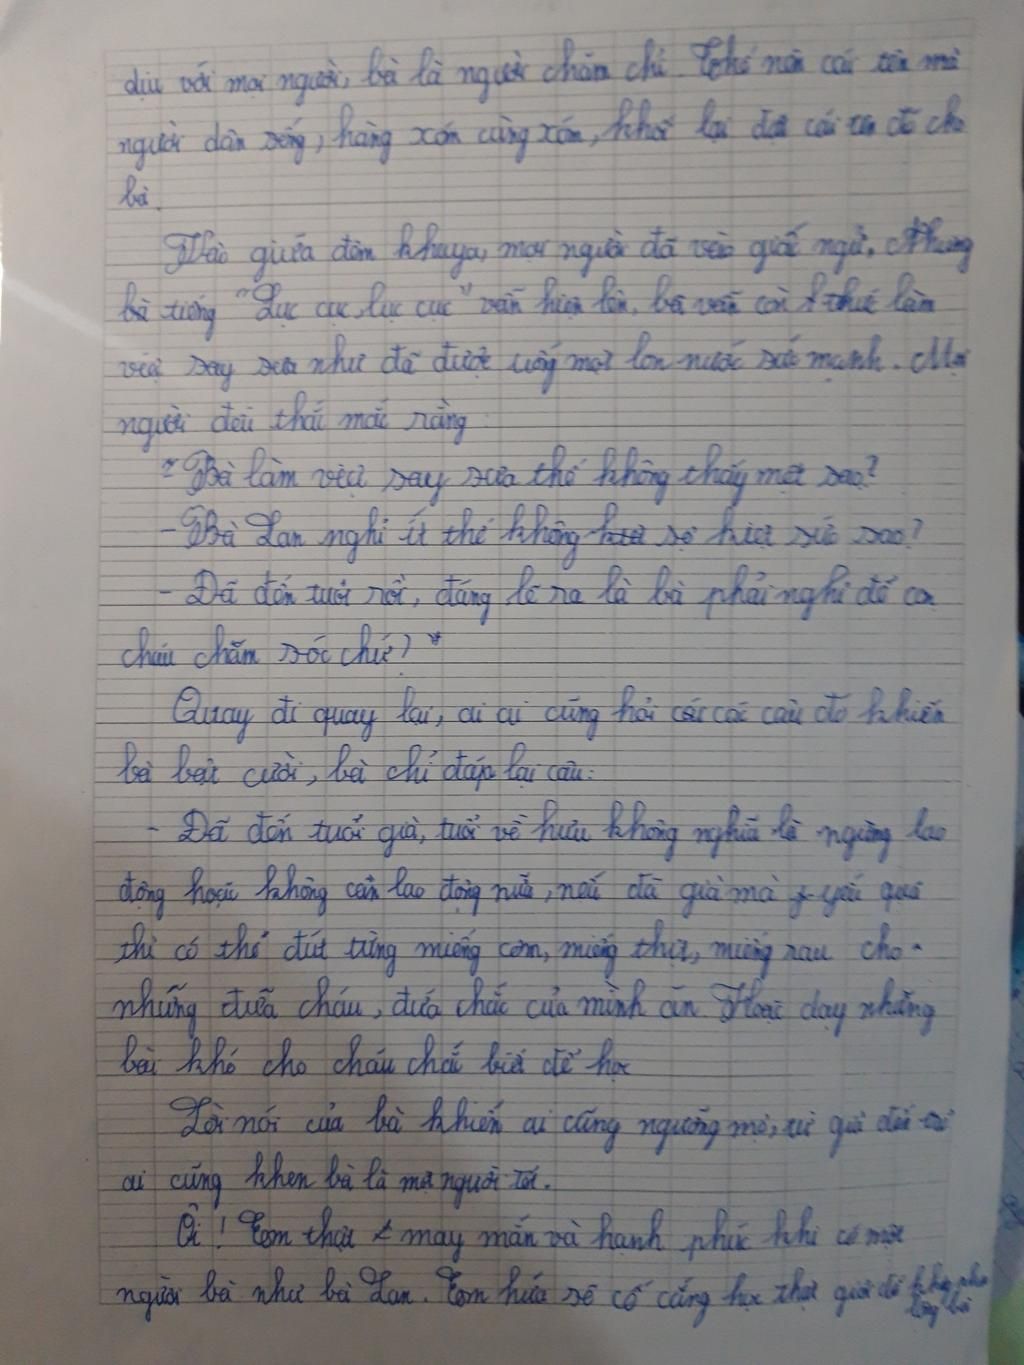 dịu với mọi người, bà là người chăm chỉ. Thế nên cái tên mà
người dân sống, hàng xóm cùng xóm, khối lại đặt cái tên đó cho
bà.
Vào giữa đêm khuya, mọi người đã vào giấc ngủ. Nhưng
bà tiếng "Lục cục, lục cục" vẫn hiện lên, bà vẫn còn thức làm
việc say sưa như đã được uống một lon nước sức mạnh. Mọi
người đều thắc mắc rằng:
"- Bà làm việc say sưa thế không thấy mệt sao?
- Bà Lan nghỉ ít thế không sợ kiệt sức sao?
- Đã đến tuổi rồi, đáng lẽ ra là bà phải nghỉ để con
cháu chăm sóc chứ?"
Quay đi quay lại, ai ai cũng hỏi các câu đó khiến
bà bật cười, bà chỉ đáp lại câu:
- Đã đến tuổi già, tuổi về hưu không nghĩa là ngừng lao
động hoặc không cần lao động nữa, nếu đã già mà yếu quá
thì có thể đút từng miếng cơm, miếng thịt, miếng rau cho
những đứa cháu, đứa chắc của mình ăn. Hoặc dạy những
bài khó cho cháu chắt biết để học
Lời nói của bà khiến ai cũng ngưỡng mộ, từ già đến trẻ
ai cũng khen bà là một người tốt.
Ôi! Em thật may mắn và hạnh phúc khi có một
người bà như bà Lan. Em hứa sẽ cố cắng học thật giỏi để không phụ
lòng bà